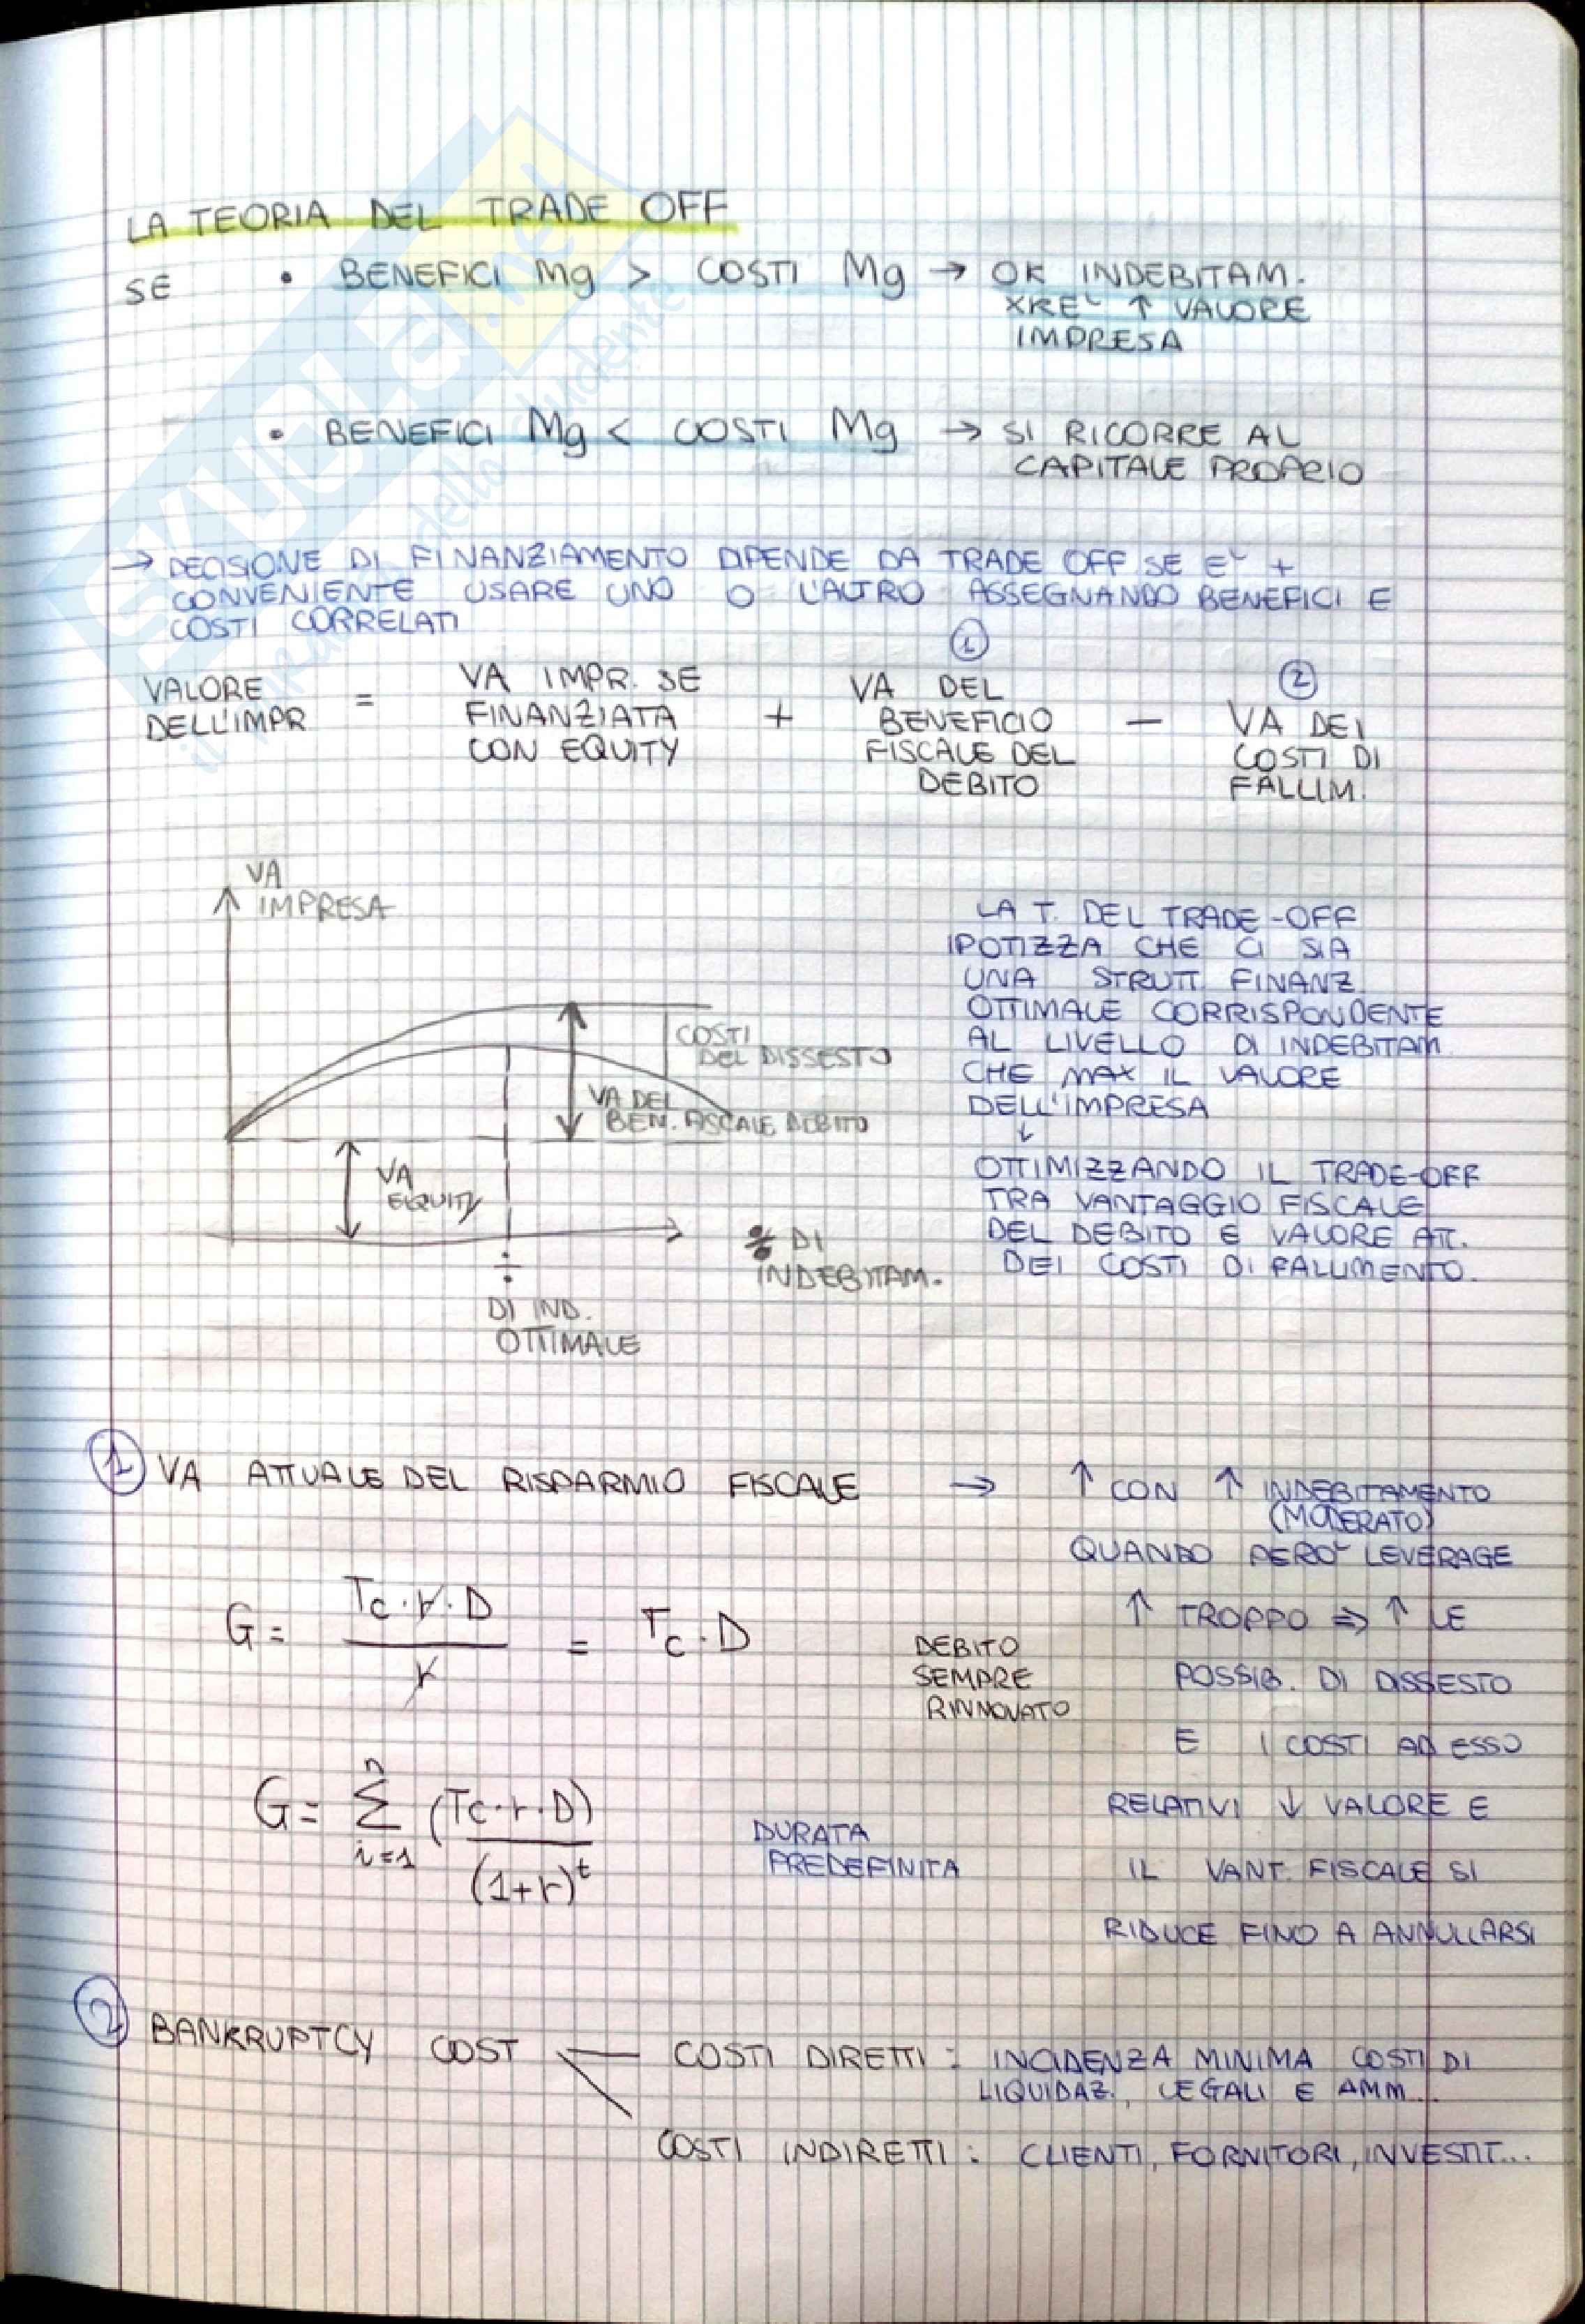 LA TEORIA DEL TRADE OFF
SE • BENEFICI Mg > COSTI Mg → OK INDEBITAM.
XRE' ↑ VALORE
IMPRESA
• BENEFICI Mg < COSTI Mg → SI RICORRE AL
CAPITALE PROPRIO
→ DECISIONE DI FINANZIAMENTO DIPENDE DA TRADE OFF SE E' +
CONVENIENTE USARE UNO O L'ALTRO ASSEGNANDO BENEFICI E
COSTI CORRELATI
VALORE DELL'IMPR = VA IMPR. SE FINANZIATA CON EQUITY + ① VA DEL BENEFICIO FISCALE DEL DEBITO - ② VA DEI COSTI DI FALLIM.
VA
IMPRESA
COSTI
DEL DISSESTO
VA DEL
BEN. FISCALE DEBITO
VA
EQUITY
% DI
INDEBITAM.
÷
DI IND.
OTTIMALE
LA T. DEL TRADE-OFF
IPOTIZZA CHE CI SIA
UNA STRUTT. FINANZ.
OTTIMALE CORRISPONDENTE
AL LIVELLO DI INDEBITAM
CHE MAX IL VALORE
DELL'IMPRESA
↓
OTTIMIZZANDO IL TRADE-OFF
TRA VANTAGGIO FISCALE
DEL DEBITO E VALORE ATT.
DEI COSTI DI FALLIMENTO.
① VA ATTUALE DEL RISPARMIO FISCALE → ↑ CON ↑ INDEBITAMENTO
(MODERATO)
QUANDO PERO' LEVERAGE
↑ TROPPO ⇒ ↑ LE
POSSIB. DI DISSESTO
E I COSTI AD ESSO
RELATIVI ↓ VALORE E
IL VANT. FISCALE SI
RIDUCE FINO A ANNULLARSI
G = Tc · r · D / r = Tc · D
DEBITO
SEMPRE
RINNOVATO
G = Σ n i=1 (Tc · r · D) / (1+r)^t
DURATA
PREDEFINITA
② BANKRUPTCY COST
COSTI DIRETTI : INCIDENZA MINIMA COSTI DI
LIQUIDAZ., LEGALI E AMM...
COSTI INDIRETTI : CLIENTI, FORNITORI, INVESTIT...
SKUOLA.net
il paradiso dello studente